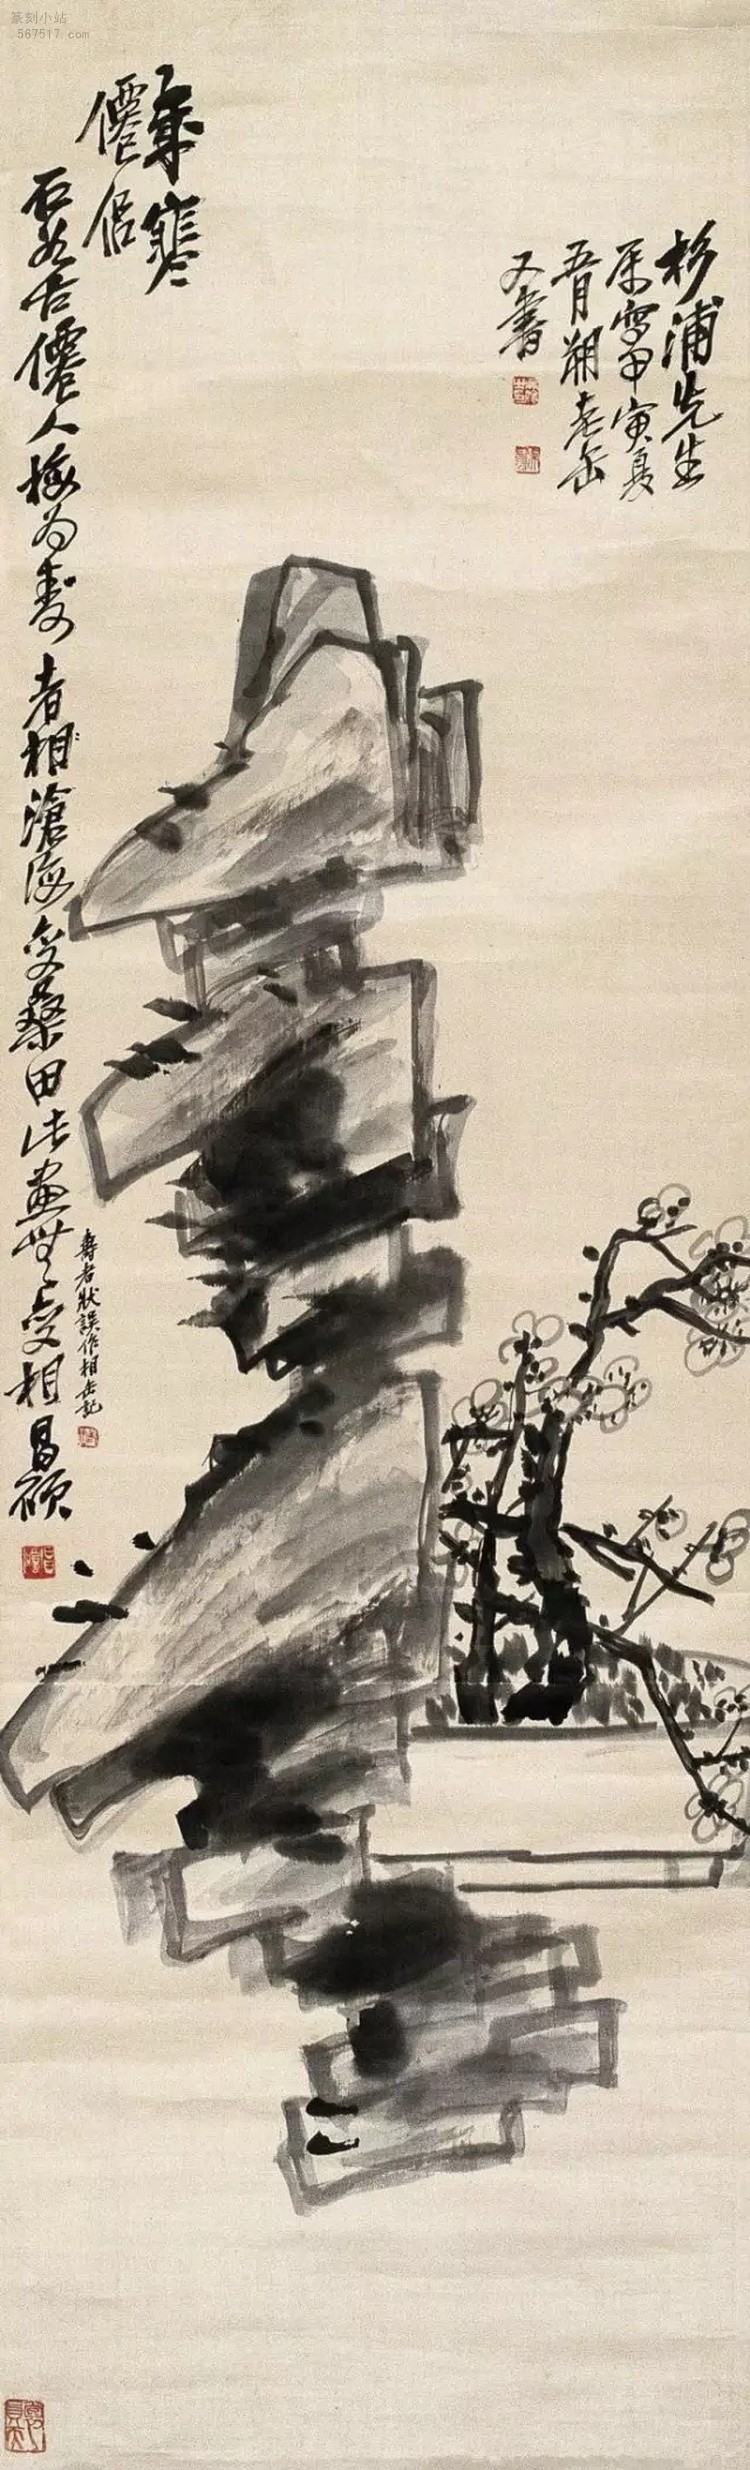 篆刻小站
567517.com
杉浦先生
屬寫甲寅夏
五月朔老缶
又書
歲寒
僊侶
石為古僊人梅為壽者相滄海變桑田此畫無變相昌碩
壽者狀誤作相缶記